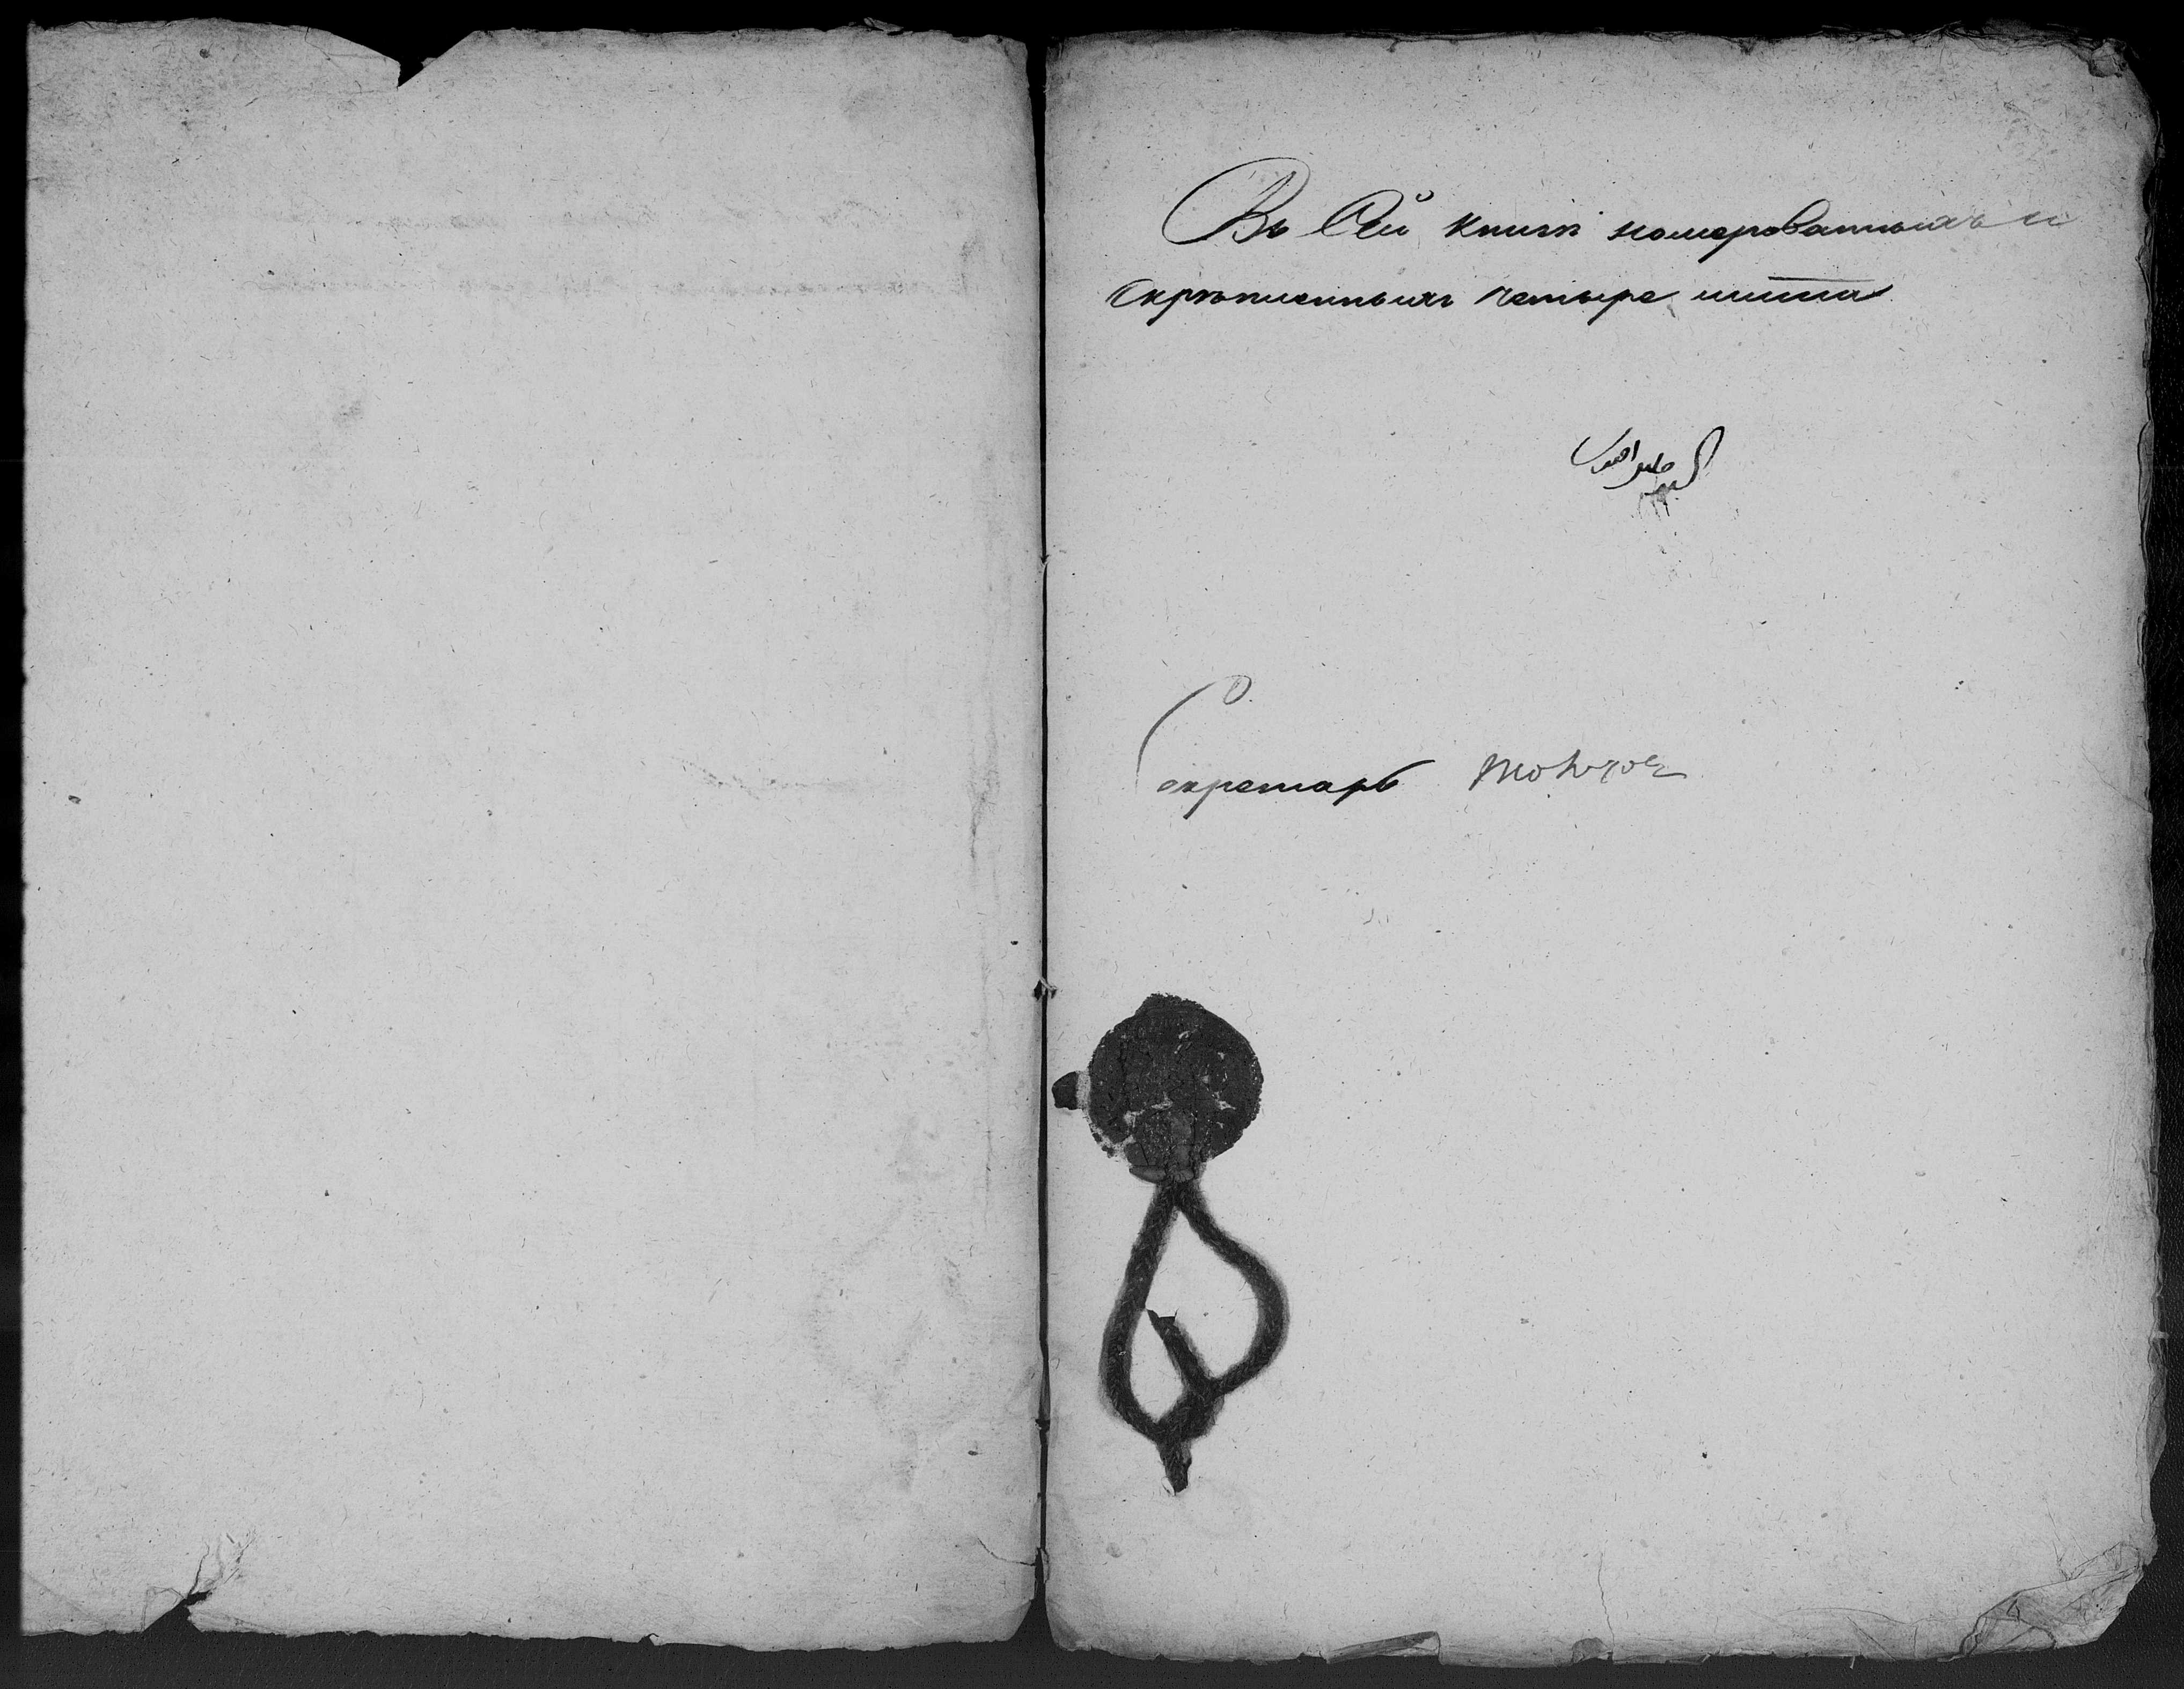 Въ Сей книгѣ номерованныхъ и
скрѣпленныхъ четыре листа
Секретарь